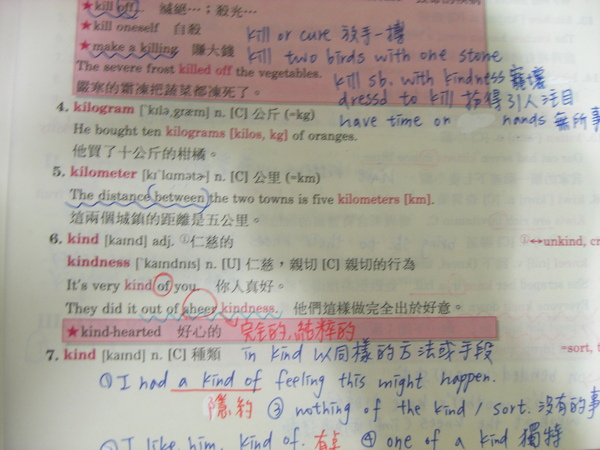 ★kill off 滅絕…；殺光…
★kill oneself 自殺 kill or cure 放手一搏
★make a killing 賺大錢 kill two birds with one stone
The severe frost killed off the vegetables. kill sb. with kindness 寵壞
嚴寒的霜凍把蔬菜都凍死了。 dressd to kill 打扮得引人注目
4. kilogram [ˋkɪləˏgræm] n. [C] 公斤 (=kg) have time on hands 無所事
He bought ten kilograms [kilos, kg] of oranges.
他買了十公斤的柑橘。
5. kilometer [kɪˋlɑmətɚ] n. [C] 公里 (=km)
The distance between the two towns is five kilometers [km].
這兩個城鎮的距離是五公里。
6. kind [kaɪnd] adj. ①仁慈的 ①↔unkind, cr
kindness [ˋkaɪndnɪs] n. [U] 仁慈，親切 [C] 親切的行為
It's very kind of you. 你人真好。
They did it out of sheer kindness. 他們這樣做完全出於好意。
★kind-hearted 好心的 完全的,純粹的
7. kind [kaɪnd] n. [C] 種類 in kind 以同樣的方法或手段 =sort, t
①I had a kind of feeling this might happen.
隱約 ③ nothing of the kind / sort. 沒有的事
②I like him, kind of. 有點 ④ one of a kind 獨特